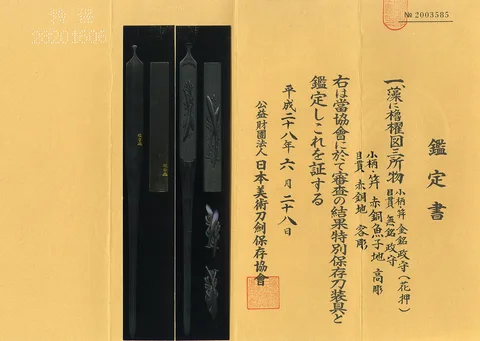 № 2003585
鑑定書
一、藻に櫓櫂図三所物 小柄・笄 金銘 政守(花押)
目貫 無銘 政守
小柄・笄 赤銅魚子地 高彫
目貫 赤銅地 容彫
右は當協會に於て審査の結果特別保存刀装具と
鑑定しこれを証する
平成二十八年六月二十八日
公益財團法人日本美術刀剣保存協會